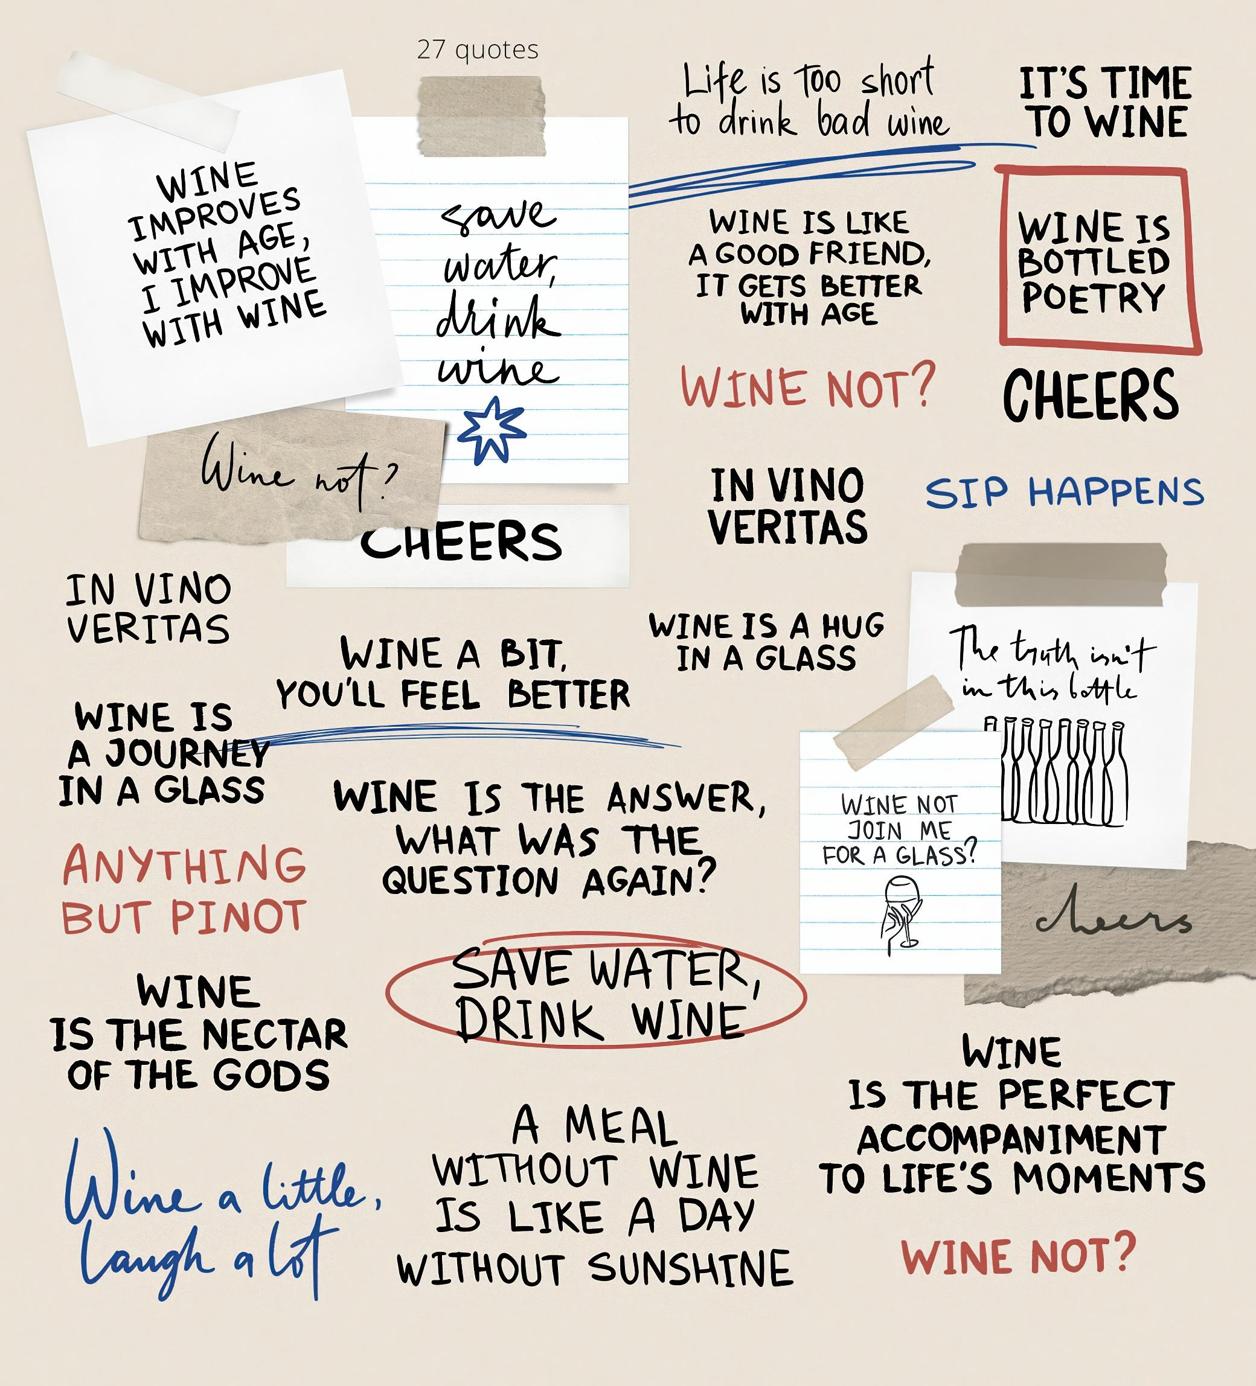 27 quotes
WINE
IMPROVES
WITH AGE,
I IMPROVE
WITH WINE
save
water,
drink
wine
Wine not?
CHEERS
Life is too short
to drink bad wine
IT'S TIME
TO WINE
WINE IS LIKE
A GOOD FRIEND,
IT GETS BETTER
WITH AGE
WINE IS
BOTTLED
POETRY
WINE NOT?
CHEERS
IN VINO
VERITAS
SIP HAPPENS
IN VINO
VERITAS
WINE A BIT,
YOU'LL FEEL BETTER
WINE IS A HUG
IN A GLASS
The truth isn't
in this bottle
WINE IS
A JOURNEY
IN A GLASS
WINE IS THE ANSWER,
WHAT WAS THE
QUESTION AGAIN?
WINE NOT
JOIN ME
FOR A GLASS?
cheers
ANYTHING
BUT PINOT
SAVE WATER,
DRINK WINE
WINE
IS THE NECTAR
OF THE GODS
WINE
IS THE PERFECT
ACCOMPANIMENT
TO LIFE'S MOMENTS
Wine a little,
laugh a lot
A MEAL
WITHOUT WINE
IS LIKE A DAY
WITHOUT SUNSHINE
WINE NOT?